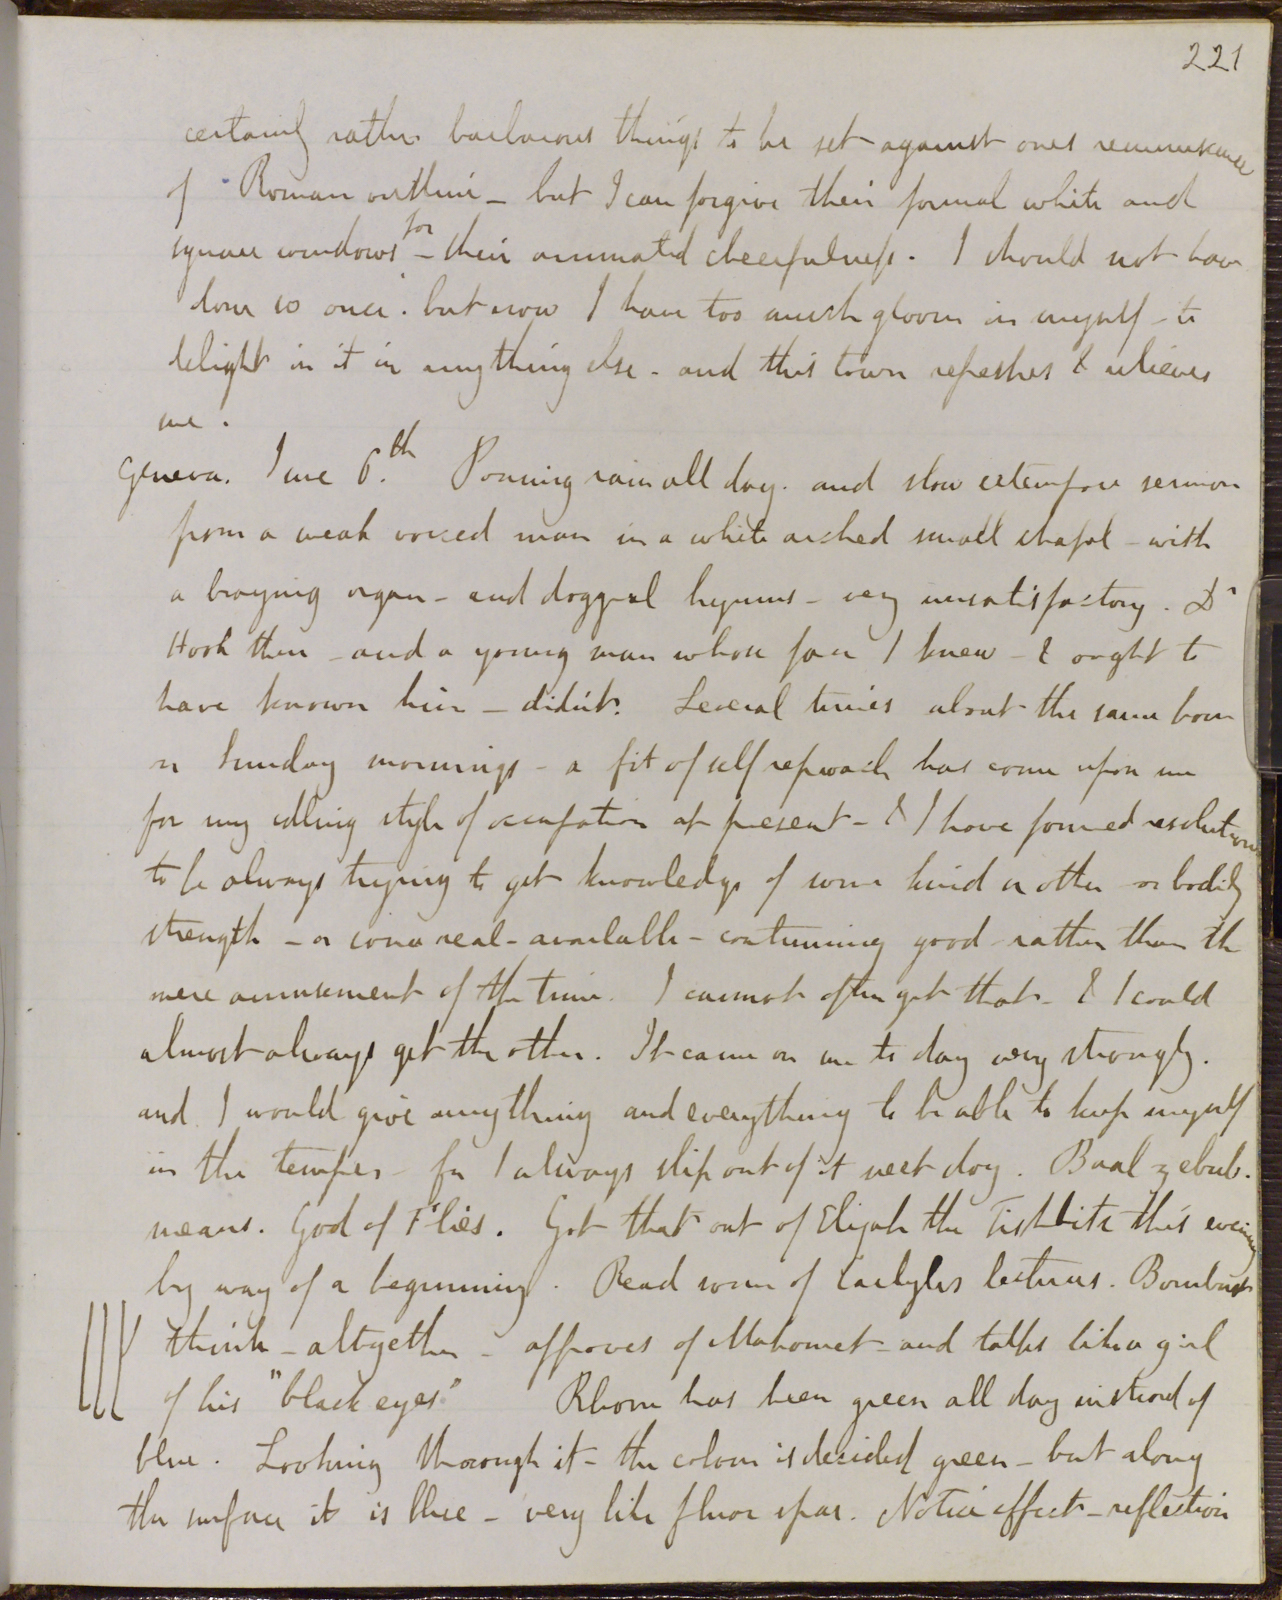 221
certainly rather barbarous things to be set against ones reminiscence
of Roman outline - but I can forgive their formal white and
square windows for - their animated cheerfulness. I should not have
done so once. but now I have too much gloom in myself - to
delight in it in anything else - and this town refreshes & relieves
me.
Geneva. June 6.th Pouring rain all day. and slow extempore sermon
from a weak voiced man in a white arched small chapel - with
a braying organ - and doggrel hymns - very unsatisfactory. Dr
Hook there - and a young man whose face I knew - & ought to
have known him - didn't. Several times about the same hour
on Sunday mornings - a fit of self reproach has come upon me
for my idling style of occupation at present - & I have formed resolutions
to be always trying to get knowledge of some kind or other or bodily
strength - or some real - available - continuing good - rather than the
mere amusement of the time. I cannot often get that - & I could
almost always get the other. It came on me to day very strongly.
and I would give anything and everything to be able to keep myself
in the temper - for I always slip out of it next day. Baal zebub.
means. God of Flies. Got that out of Elijah the Tishbite this evening
by way of a beginning. Read some of Carlyles lectures. Bombast
think - altogether - approves of Mahomet - and talks like a girl
of his "black eyes." Rhone has been green all day instead of
blue. Looking through it - the colour is decided green - but along
the surface it is blue - very like fluor spar. Notice effect - reflection